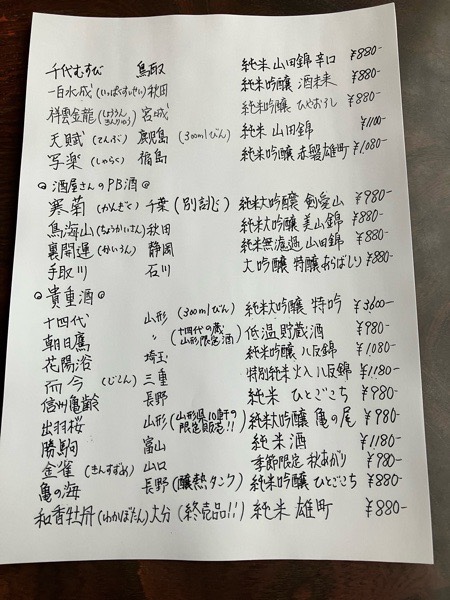 千代むすび 鳥取 純米 山田錦 辛口 ¥880-
一白水成(いっぱくすいせい)秋田 純米吟醸 酒未来 ¥880-
祥雲金龍(しょううんきんりゅう)宮城 純米吟醸 ひやおろし ¥880-
天賦(てんぶ)鹿児島(300mlびん)純米 山田錦 ¥1100-
写楽(しゃらく)福島 純米吟醸 赤磐雄町 ¥1,080-
◎酒屋さんのPB酒◎
寒菊(かんぎく)千葉(別誂じ)純米大吟醸 剣愛山 ¥980-
鳥海山(ちょうかいさん)秋田 純米大吟醸 美山錦 ¥880-
裏開運(かいうん)静岡 純米無濾過 山田錦 ¥880-
手取川 石川 大吟醸 特醸あらばしり ¥880-
◎貴重酒◎
十四代 山形(300mlびん)純米大吟醸 特吟 ¥3600-
朝日鷹 〃(十四代の蔵 山形限定酒)低温貯蔵酒 ¥980-
花陽浴 埼玉 純米吟醸 八反錦 ¥1080-
而今(じこん)三重 特別純米 火入 八反錦 ¥1180-
信州亀齢 長野 純米 ひとごこち ¥980-
出羽桜 山形(山形県10軒の限定販売!!)純米大吟醸 亀の尾 ¥980-
勝駒 富山 純米酒 ¥1180-
金雀(きんすずめ)山口 季節限定 秋あがり ¥980-
亀の海 長野(醸熱タンク)純米吟醸 ひとごこち ¥880-
和香牡丹(わかぼたん)大分(終売品!!)純米 雄町 ¥880-